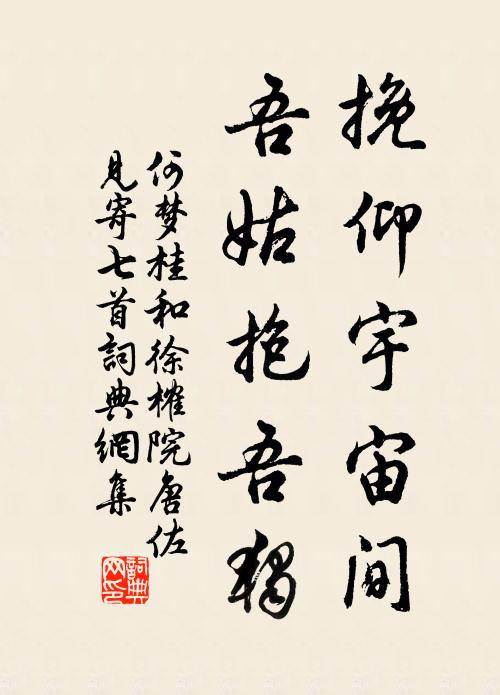 挽仰宇宙间
吾姑抱吾獨
何梦桂和徐榷院唐佐
見寄七首詞典網集
詞典
网印